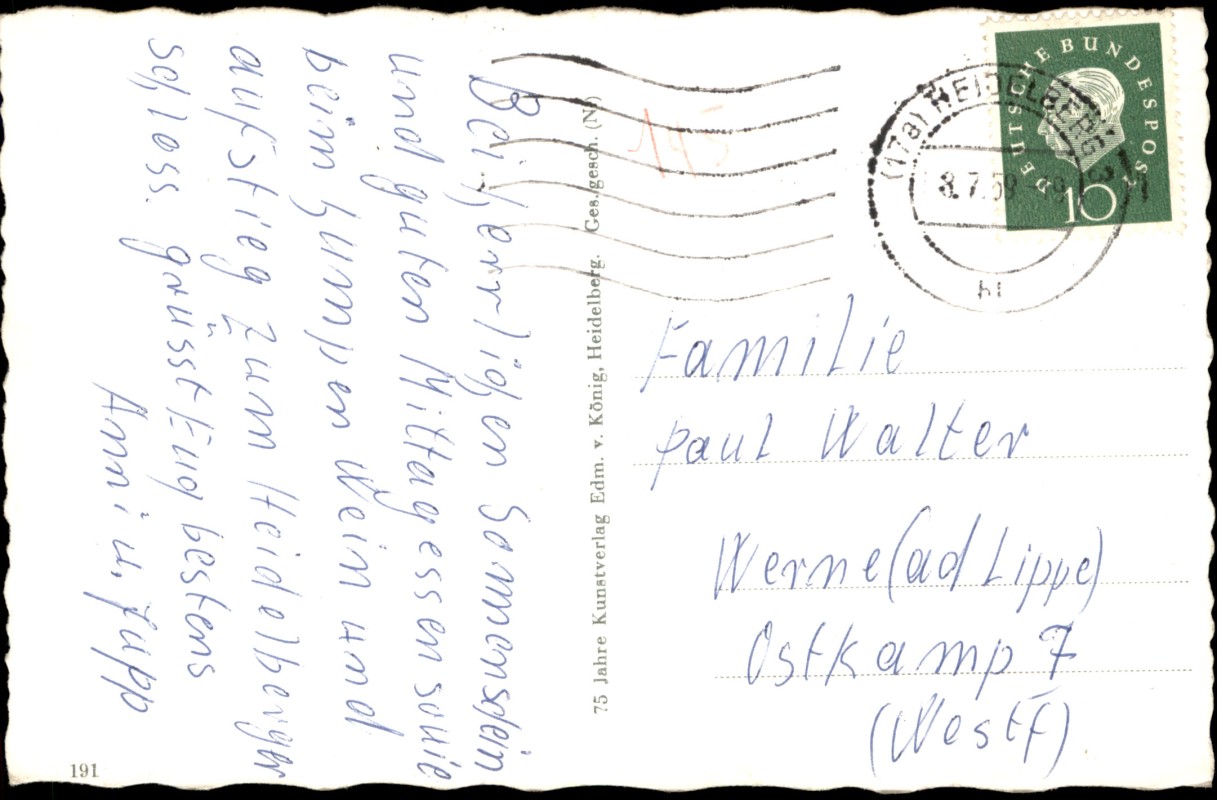 Bei herrlichen Sonnenschein
und guten Mittagessen sowie
beim humpen Wein und
aufstieg zum Heidelberger
schloss. grüsst Eug bestens
Anni u. Jupp
191
75 Jahre Kunstverlag Edm. v. König, Heidelberg. Ges. gesch. (N)
145
DEUTSCHE BUNDESPOST
10
(178) HEIDELBERG
8.7.59
hi
Familie
Paul Walter
Werne (ad Lippe)
Ostkamp 7
(Westf)